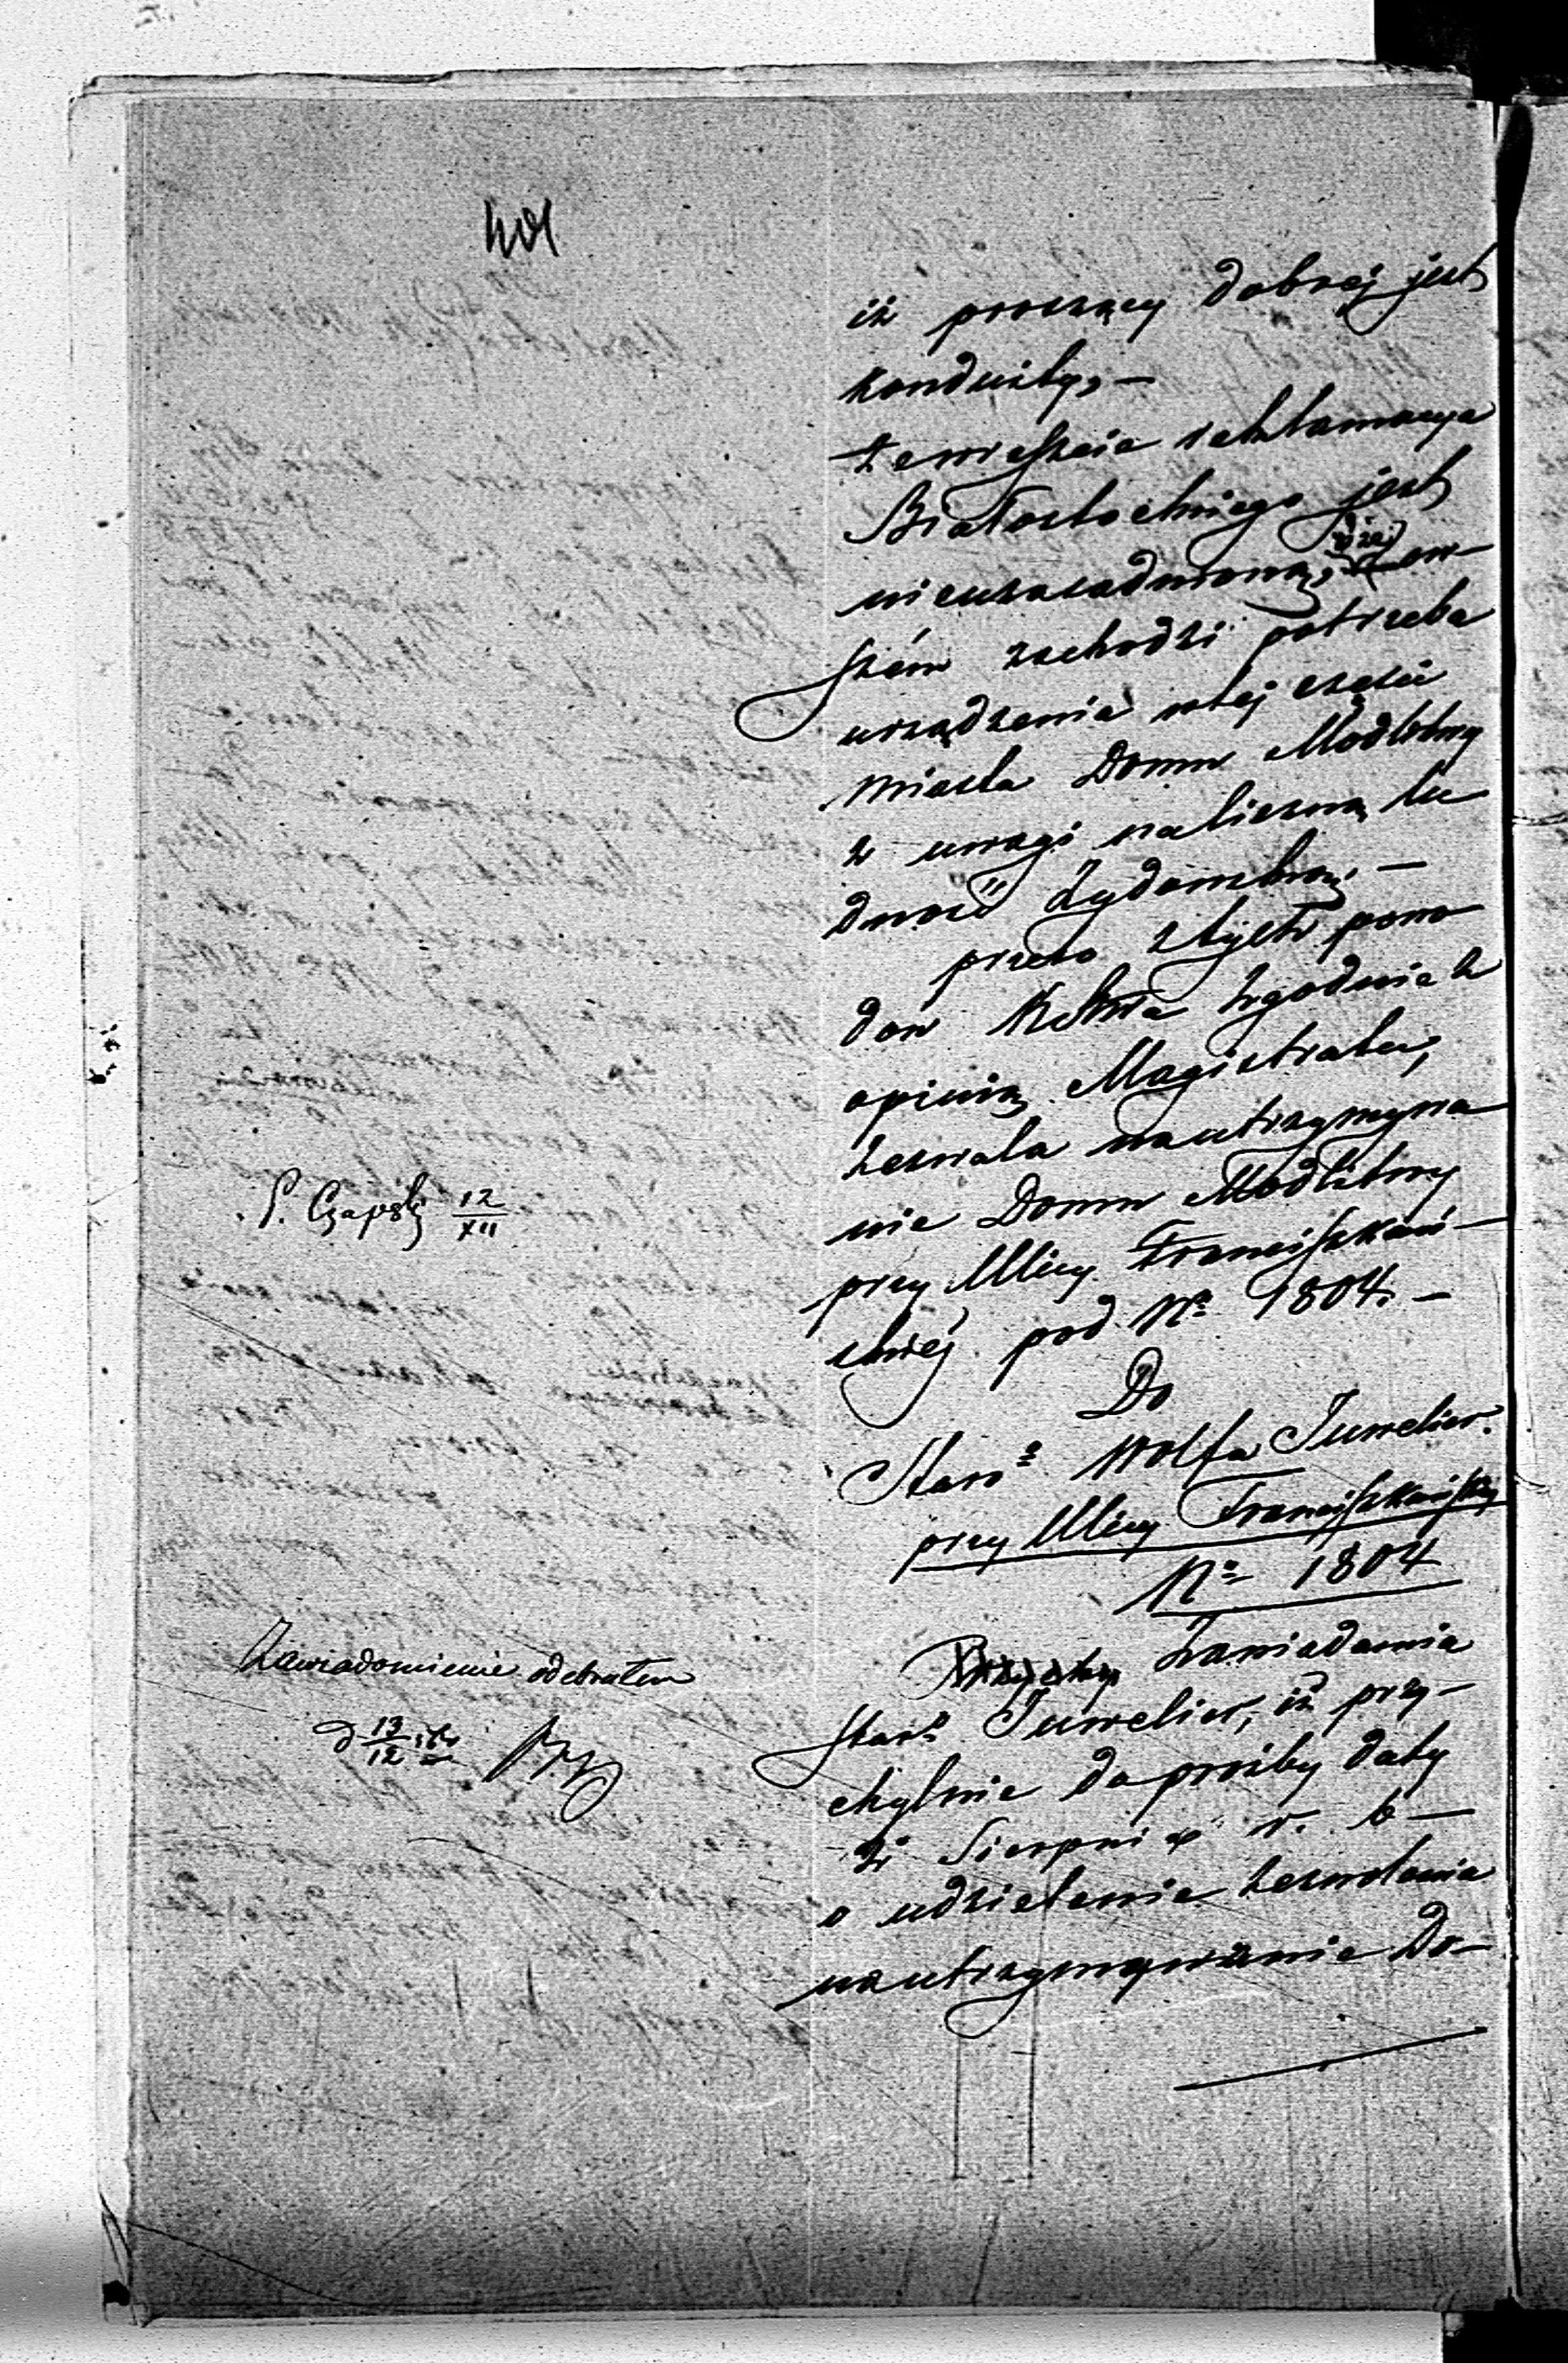 401
iż proszący dobrej jest
konduity, —
że wreszcie reklamacya
Białostockiego jest
nieuzasadnioną, i że ow-
szém zachodzi potrzeba
urządzenia w tej części
miasta Domu Modlitwy
z uwagi na liczną lu
dność Żydowską. —
przeto z tych powo
dów Rektwa zgodnie z
opinią Magistratu,
zezwala na utrzymywa
nie Domu Modlitwy
przy Ulicy Franciszkań-
skiéj pod No 1804. —
Do
Staro Wolfa Juwelier.
przy Ulicy Franciszkańskiej
No 1804
P. Czapski 12/XII
Zawiadamia
Staro Juwelier, iż przy-
chylnie do prośby daty
Sierpnia r. b —
o udzielenie zezwolenia
na utrzymywanie Do-
Zawiadomienie odebrałem
d 13/12